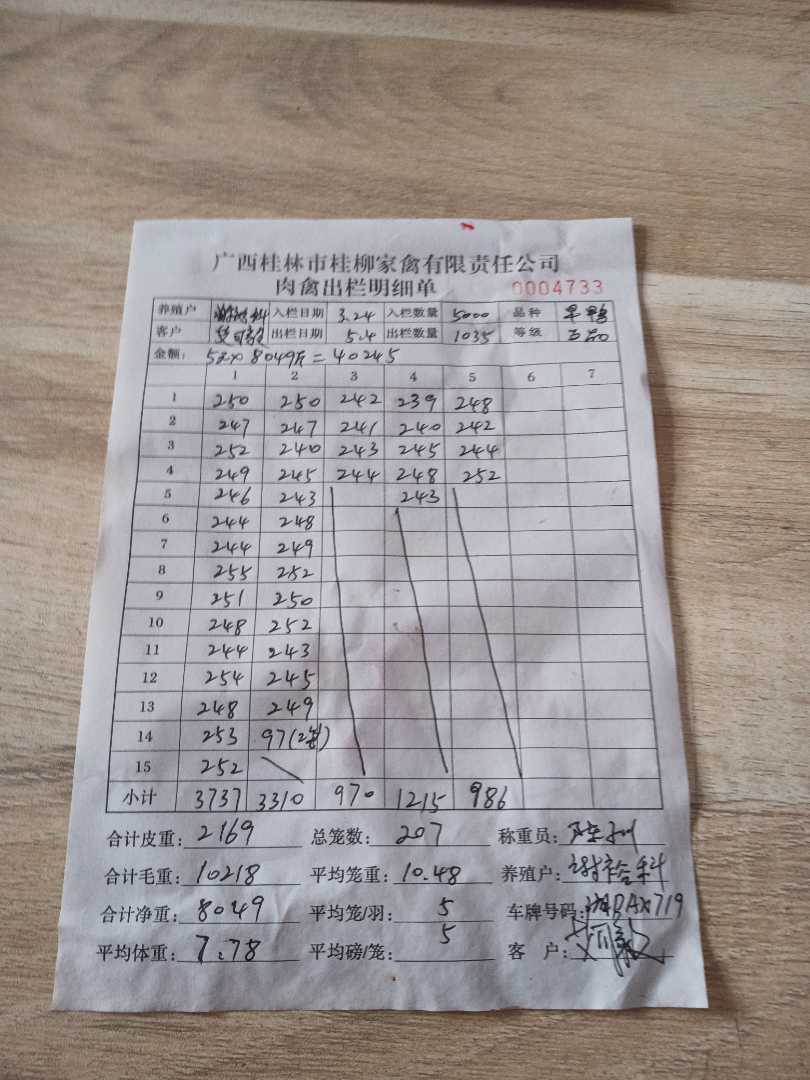 广西桂林市桂柳家禽有限责任公司
肉禽出栏明细单 0004733
养殖户 入栏日期 3.24 入栏数量 5000 品种 旱鸭
客户 出栏日期 5.4 出栏数量 1035 等级 正品
金额: 5元×8049斤=40245
1 2 3 4 5 6 7
1 250 250 242 239 248
2 247 247 241 240 242
3 252 240 243 245 244
4 249 245 244 248 252
5 246 243 243
6 244 248
7 244 249
8 255 252
9 251 250
10 248 252
11 244 243
12 254 245
13 248 249
14 253 97(2笼)
15 252
小计 3737 3310 970 1215 986
合计皮重: 2169 总笼数: 207 称重员:
合计毛重: 10218 平均笼重: 10.48 养殖户:
合计净重: 8049 平均笼/羽: 5 车牌号码:
平均体重: 7.78 平均磅/笼: 5 客 户: